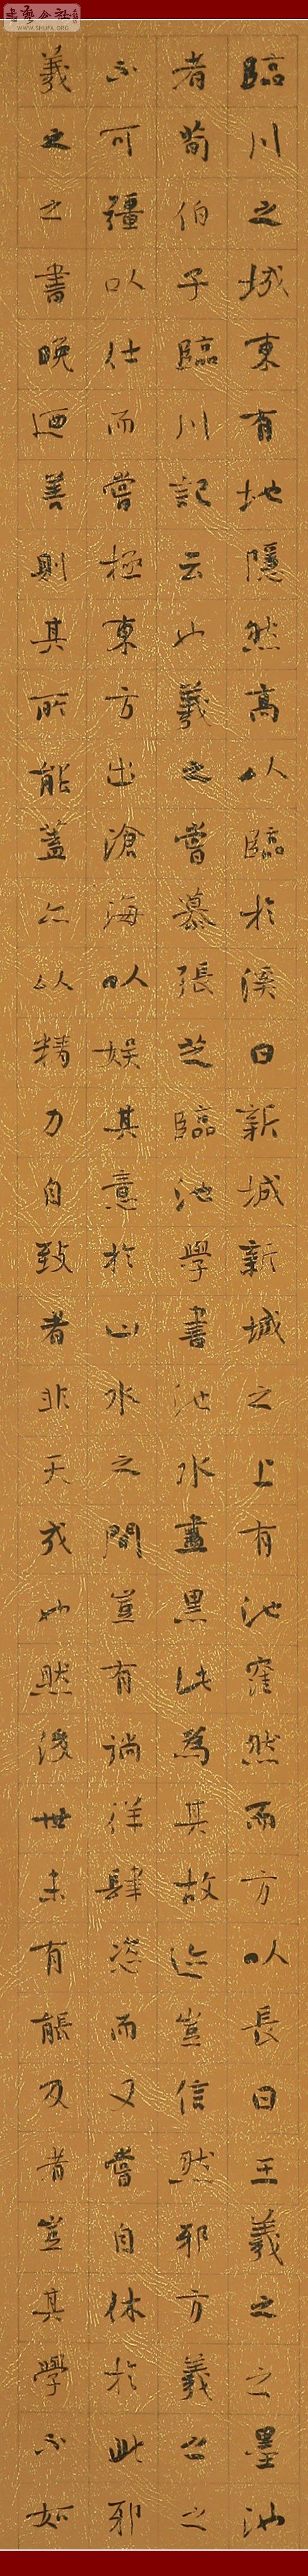 書藝公社
WWW.SHUFA.ORG
臨川之城東有地隱然高以臨於溪曰新城新城之上有池窪然而方以長曰王羲之之墨池
者荀伯子臨川記云也羲之嘗慕張芝臨池學書池水盡黑此為其故迹豈信然邪方羲之之
不可彊以仕而嘗極東方出滄海以娛其意於山水之間豈有徜徉肆恣而又嘗自休於此邪
羲之之書晚迺善則其所能蓋亦以精力自致者非天成也然後世未有能及者豈其學不如